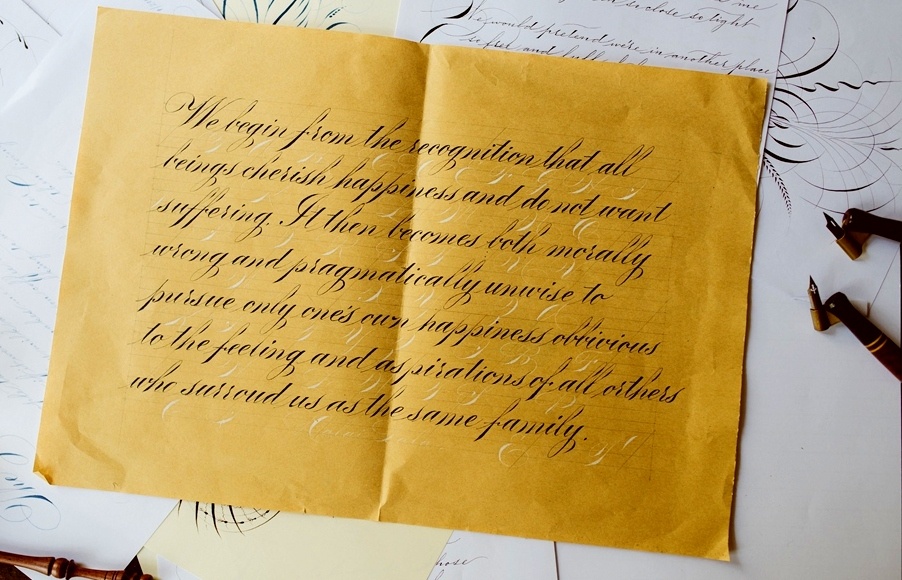 me
so close so tight
We would pretend we're in another place
so free and
We begin from the recognition that all
beings cherish happiness and do not want
suffering. It then becomes both morally
wrong and pragmatically unwise to
pursue only one's own happiness oblivious
to the feeling and aspirations of all orthers
who surroud us as the same family.